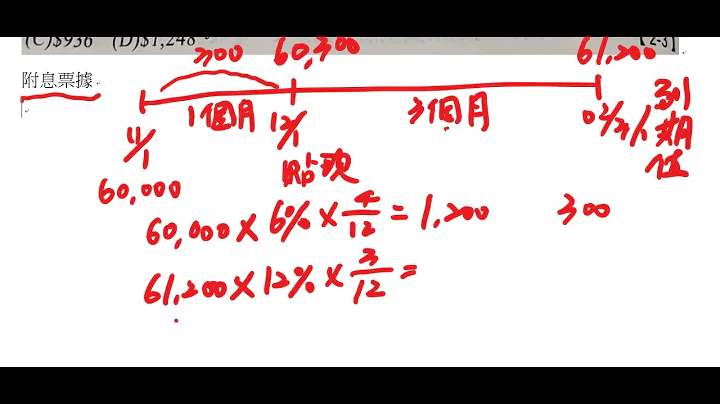 (C)$936 (D)$1,248 【2-3】
300 60,300 61,200
附息票據
1個月 3個月
11/1 12/1 到期值
60,000 貼現
60,000 × 6% × 4/12 = 1,200 300
61,200 × 12% × 3/12 =